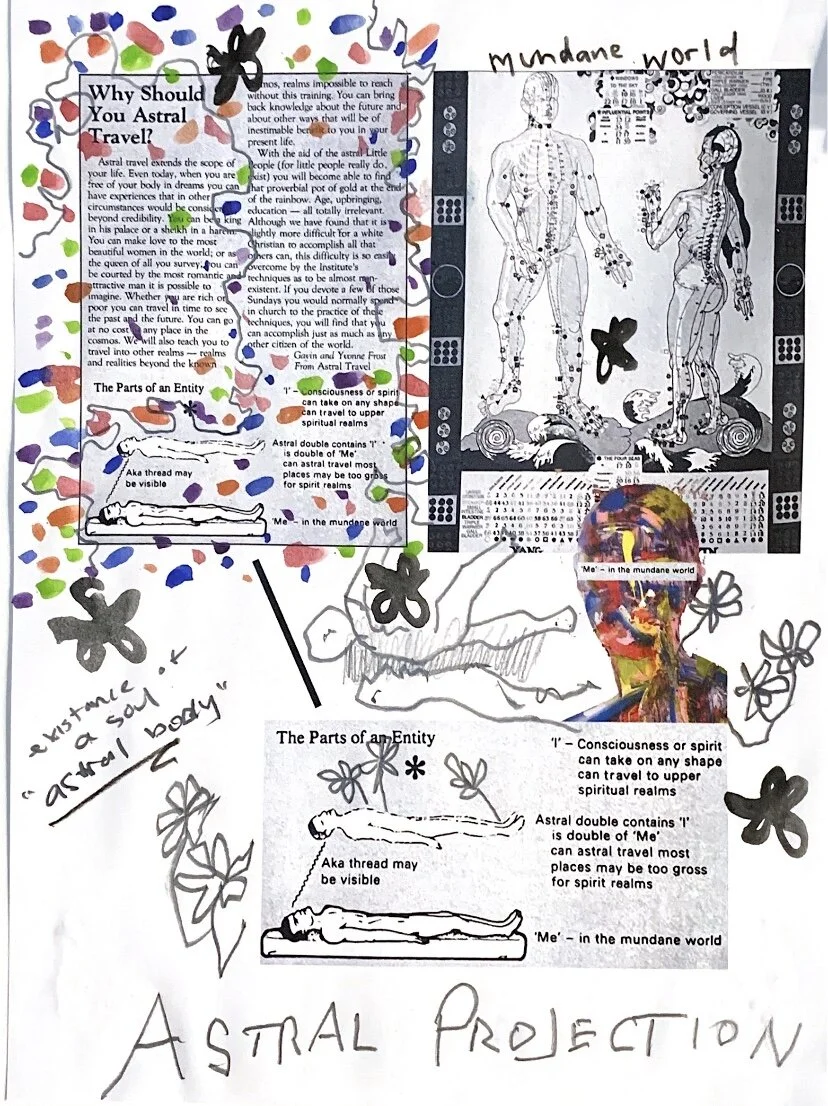 mundane world
Why Should
You Astral
Travel?
Astral travel extends the scope of
your life. Even today, when you are
free of your body in dreams you can
have experiences that in other
circumstances would be consider
beyond credibility. You can be a king
in his palace or a sheikh in a harem.
You can make love to the most
beautiful women in the world; or as
the queen of all you survey, you can
be courted by the most romantic and
attractive man it is possible to
imagine. Whether you are rich or
poor you can travel in time to see
the past and the future. You can go
at no cost to any place in the
cosmos. We will also teach you to
travel into other realms — realms
and realities beyond the known
mos, realms impossible to reach
without this training. You can bring
back knowledge about the future and
about other ways that will be of
inestimable benefit to you in your
present life.
With the aid of the astral Little
People (for little people really do
exist) you will become able to find
that proverbial pot of gold at the end
of the rainbow. Age, upbringing,
education — all totally irrelevant.
Although we have found that it is
slightly more difficult for a white
Christian to accomplish all that
others can, this difficulty is so easily
overcome by the Institute's
techniques as to be almost non-
existent. If you devote a few of those
Sundays you would normally spend
in church to the practice of these
techniques, you will find that you
can accomplish just as much as any
other citizen of the world.
Gavin and Yvonne Frost
From Astral Travel
The Parts of an Entity
'I' – Consciousness or spirit
can take on any shape
can travel to upper
spiritual realms
Astral double contains 'I'
is double of 'Me'
can astral travel most
places may be too gross
for spirit realms
Aka thread may
be visible
'Me' – in the mundane world
WINDOWS
TO THE SKY
INFLUENTIAL POINTS
THE FOUR SEAS
YANG
'Me' – in the mundane world
existance of
a soul
"astral body"
The Parts of an Entity
*
'I' – Consciousness or spirit
can take on any shape
can travel to upper
spiritual realms
Astral double contains 'I'
is double of 'Me'
can astral travel most
places may be too gross
for spirit realms
Aka thread may
be visible
'Me' – in the mundane world
ASTRAL PROJECTION